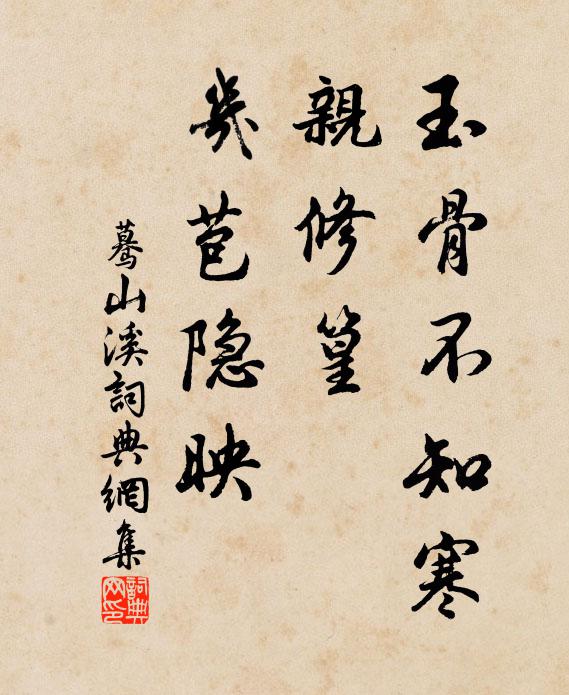 玉骨不知寒
親修篁
幾苞隐映
驀山溪詞典網集
詞典網印